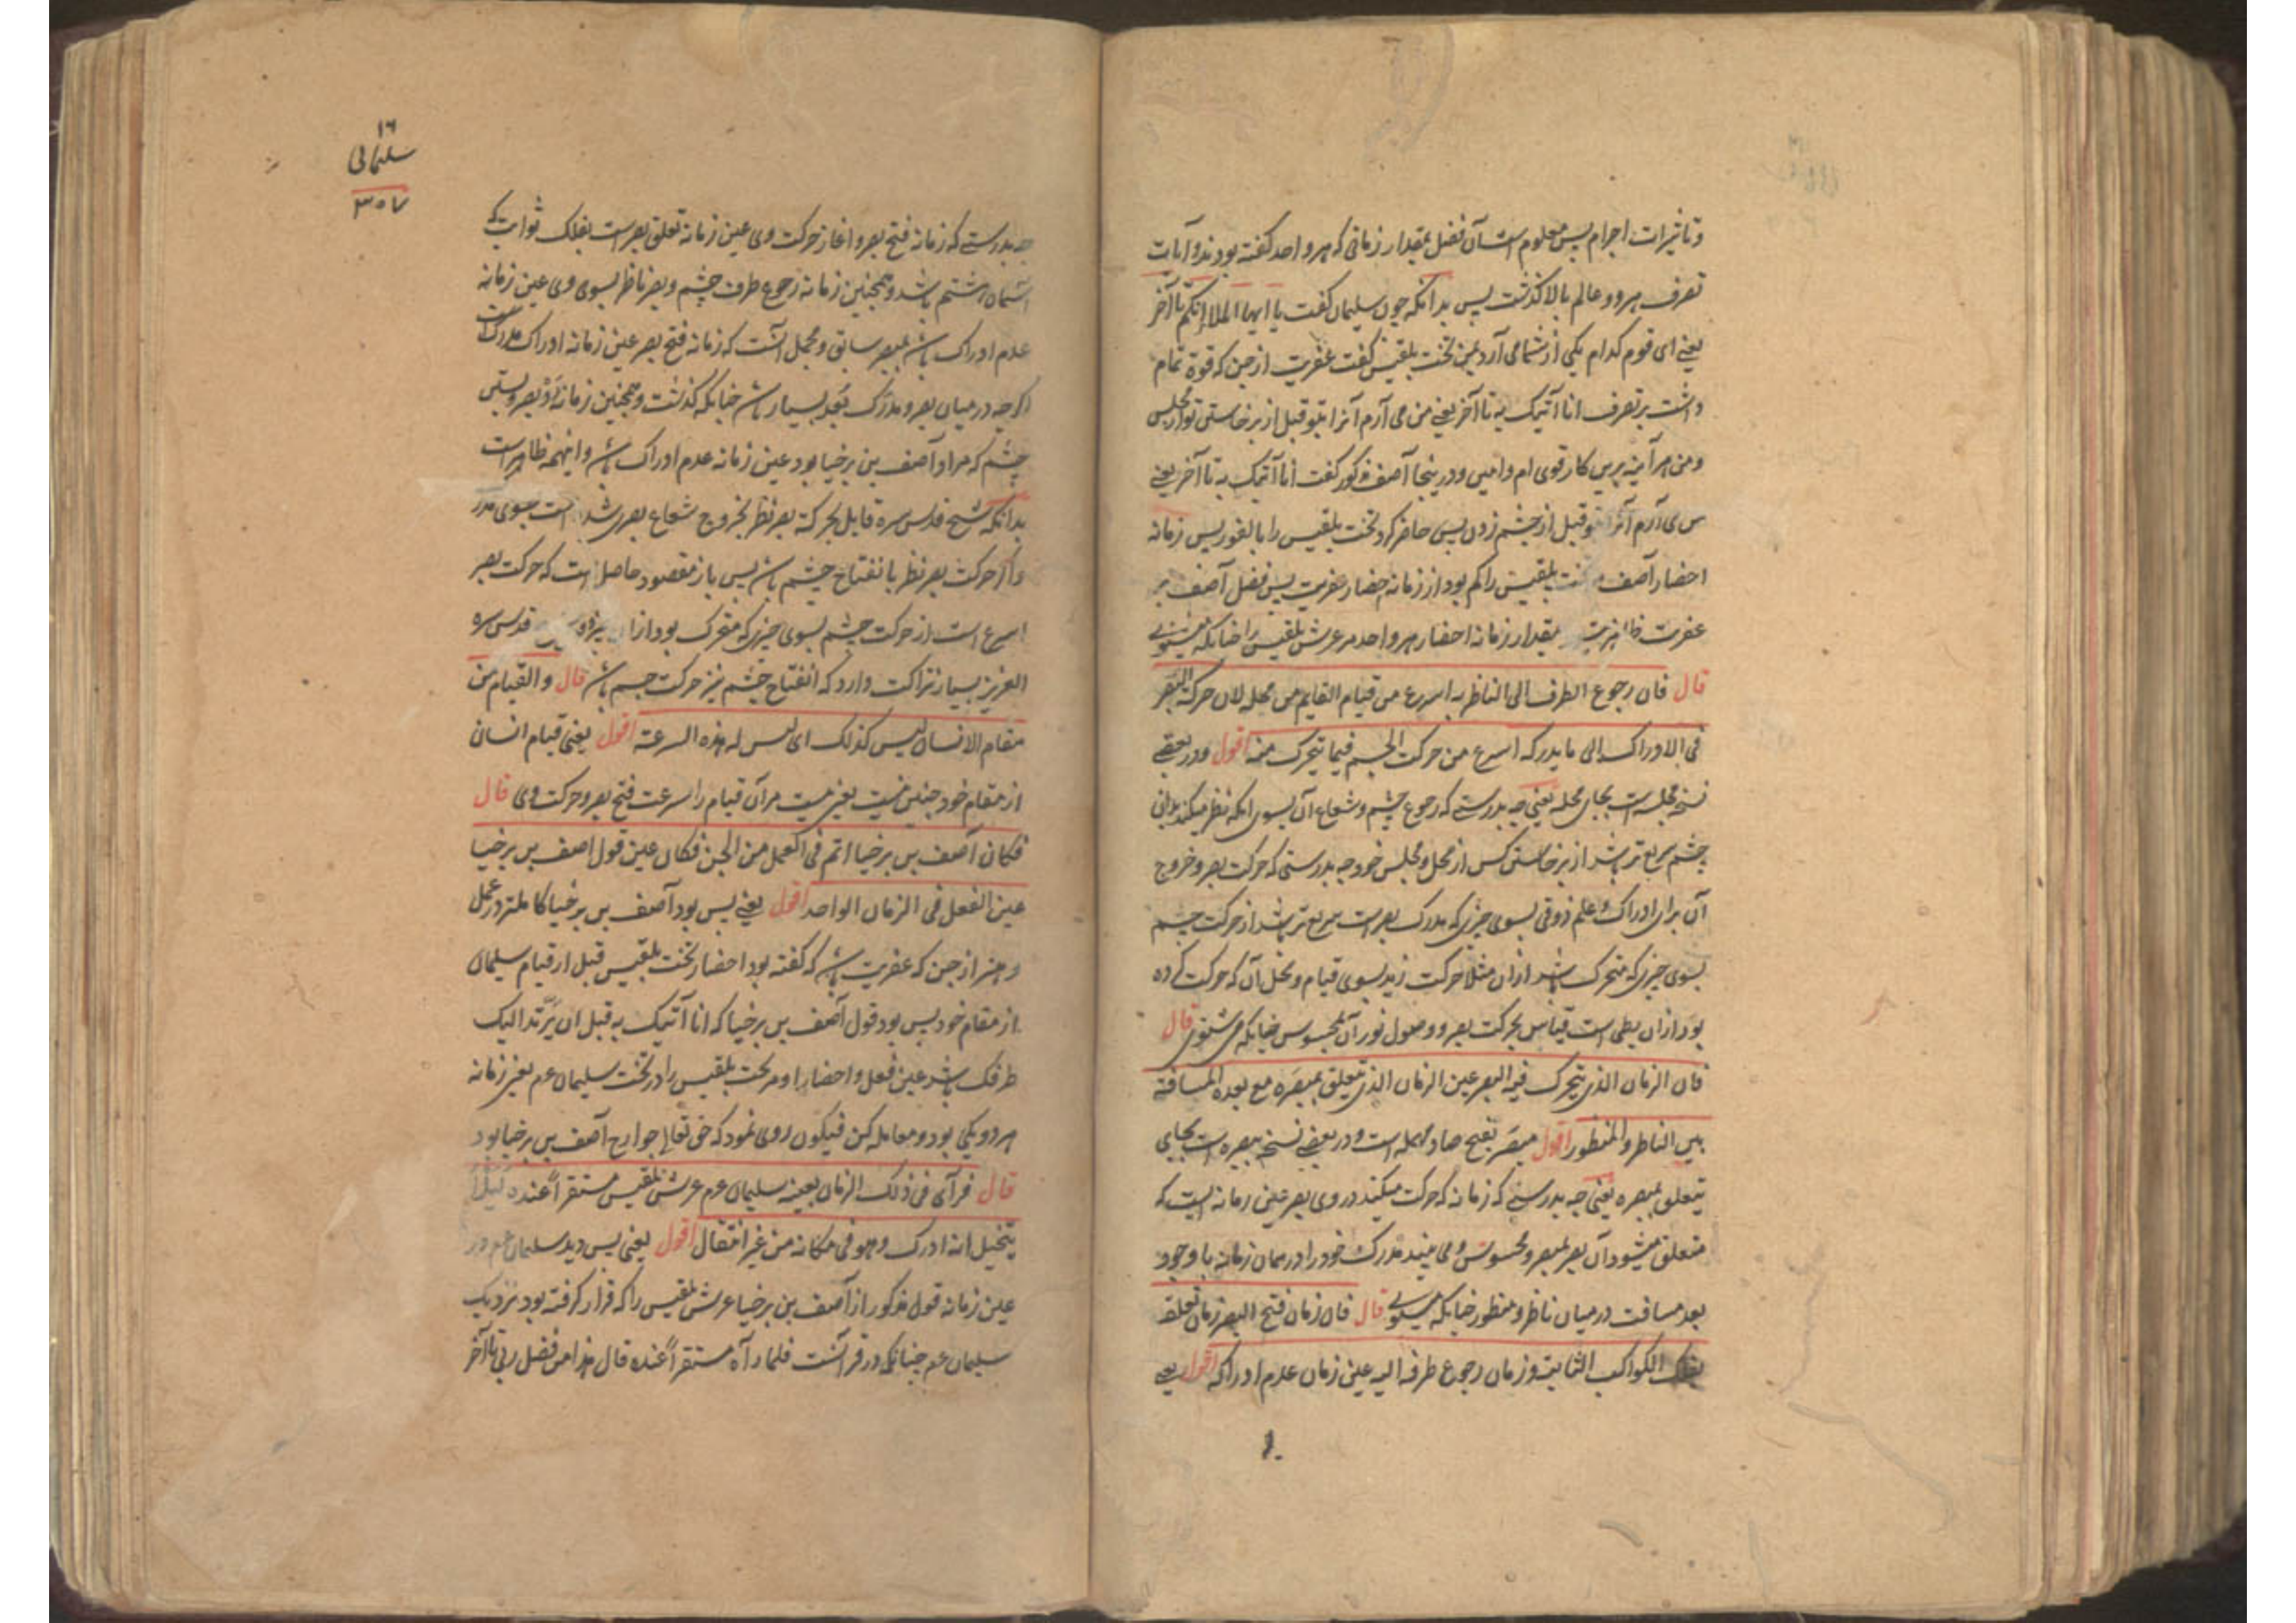 و تاثیرات اجرام پس معلوم است آن فضل بمقدار زمانی که هر واحد گفته بودند و آیات
تصرف هر دو عالم بالا گذشت پس بدانکه چون سلیمان گفت یا ایها الملا ایکم تا آخر
یعنی ای قوم کدام یکی از شما می آرد بمن تخت بلقیس گفت عفریت از جن که قوة تمام
داشت بر تصرف انا آتیک به تا آخر یعنی من می آرم آنرا بتو قبل از برخاستن تو از مجلس
و من هر آینه برین کار قوی ام و امین و درینجا آصف مذکور گفت انا آتیک به تا آخر یعنی
من می آرم آنرا بتو قبل از چشم زدن پس حاضر کرد تخت بلقیس را بالفور پس زمانه
احضار آصف تخت بلقیس را کم بود از زمانه احضار عفریت پس فضل آصف بر
عفریت بمقدار زمانه احضار هر واحد مر عرش بلقیس را چنانکه میشنوی
قال فان رجوع الطرف الی الناظر به اسرع من قیام القایم من محله لان حرکة البصر
فی الادراک الی ما یدرکه اسرع من حرکت الجسم فیما یتحرک منه اقول و در بعضی
نسخه مجلسه است بجای محله یعنی چه بدرستے که رجوع چشم و شعاع آن بسوی آنکه نظر میکند بدانی
چشم سریع تر باشد از برخاستن کس از محل و مجلس خود چه بدرستی که حرکت بصر و خروج
آن برای ادراک و علم ذوقی بسوی چیزی که مدرک بصر است سریع تر باشد از حرکت جسم
بسوی چیزی که متحرک باشد ازان مثلا حرکت زید بسوی قیام و محل آن که حرکت کرده
بود ازان بطی است قیاس بحرکت بصر و وصول نور آن بمحسوس چنانکه می شنوی قال
فان الزمان الذی یتحرک فیه البصر عین الزمان الذی یتعلق بمبصره مع بعد المسافة
بین الناظر و المنظور اقول مبصر بفتح صاد مهمله است و در بعضے نسخه مبصره است بجای
یتعلق بمبصره یعنی چه بدرستے که زمانه که حرکت میکند در وی بصر عین زمانه ایست که
متعلق میشود آن بصر بمبصر و محسوس و می بیند مدرک خود را در همان زمانه با وجود
بعد مسافت در میان ناظر و منظور چنانکه میشنوی قال فان زمان فتح البصر زمان تعلقه
بفلک الکواکب الثابتة و زمان رجوع طرفه الیه عین زمان عدم ادراکه اقول یعنی
۱۶
سلیمانی
۳۵۷
چه بدرستے که زمانه فتح بصر و آغاز حرکت وی عین زمانه تعلق بصر است بفلک ثوابت که
آسمان هشتم باشد و همچنین زمانه رجوع طرف چشم و بصر ناظر بسوی وی عین زمانه
عدم ادراک باشد بمبصر سابق و مجمل آنست که زمانه فتح بصر عین زمانه ادراک مدرک است
اگرچه در میان بصر و مدرک بعد بسیار باشد چنانکه گذشت و همچنین زمانه بصر و بستن
چشم که مراد آصف بن برخیا بود عین زمانه عدم ادراک باشد و اینهمه ظاهر است
بدانکه شیخ قدس سره قایل بحرکة بصر نظر بخروج شعاع بصری شده است بسوی مدرک
و اگر حرکت بصر نظر بانفتاح چشم باشد پس باز مقصود حاصل است که حرکت بصر
اسرع است از حرکت جسم بسوی چیزی که متحرک بود ازان قدس سره
العزیز بسیار نزاکت دارد که انفتاح چشم نیز حرکت جسم باشد قال و القیام من
مقام الانسان لیس کذلک ای لیس له هذه السرعة اقول یعنی قیام انسان
از مقام خود چنین نیست یعنی نیست مر آن قیام را سرعت فتح بصر و حرکت وی قال
فکان آصف بن برخیا اتم فی العمل من الجن فکان عین قول آصف بن برخیا
عین الفعل فی الزمان الواحد اقول یعنی پس بود آصف بن برخیا کاملتر در عمل
و هنر از جن که عفریت باشد که گفته بود احضار تخت بلقیس قبل از قیام سلیمان
از مقام خود پس بود قول آصف بن برخیا که انا آتیک به قبل ان یرتد الیک
طرفک باشد عین فعل و احضار او مر تخت بلقیس را در تخت سلیمان عم یعنی زمانه
هر دو یکی بود و معامله کن فیکون روی نمود که حق تعالی جوارح آصف بن برخیا بود
قال فرآی فی ذلک الزمان بعینه سلیمان عم عرش بلقیس مستقراً عنده لئلا
یتخیل انه ادرک و هو فی مکانه من غیر انتقال اقول یعنی پس دید سلیمان عم در
عین زمانه قول مذکور از آصف بن برخیا عرش بلقیس را که قرار گرفته بود نزدیک
سلیمان عم چنانکه در قرآنست فلما رآه مستقراً عنده قال هذا من فضل ربی تا آخر